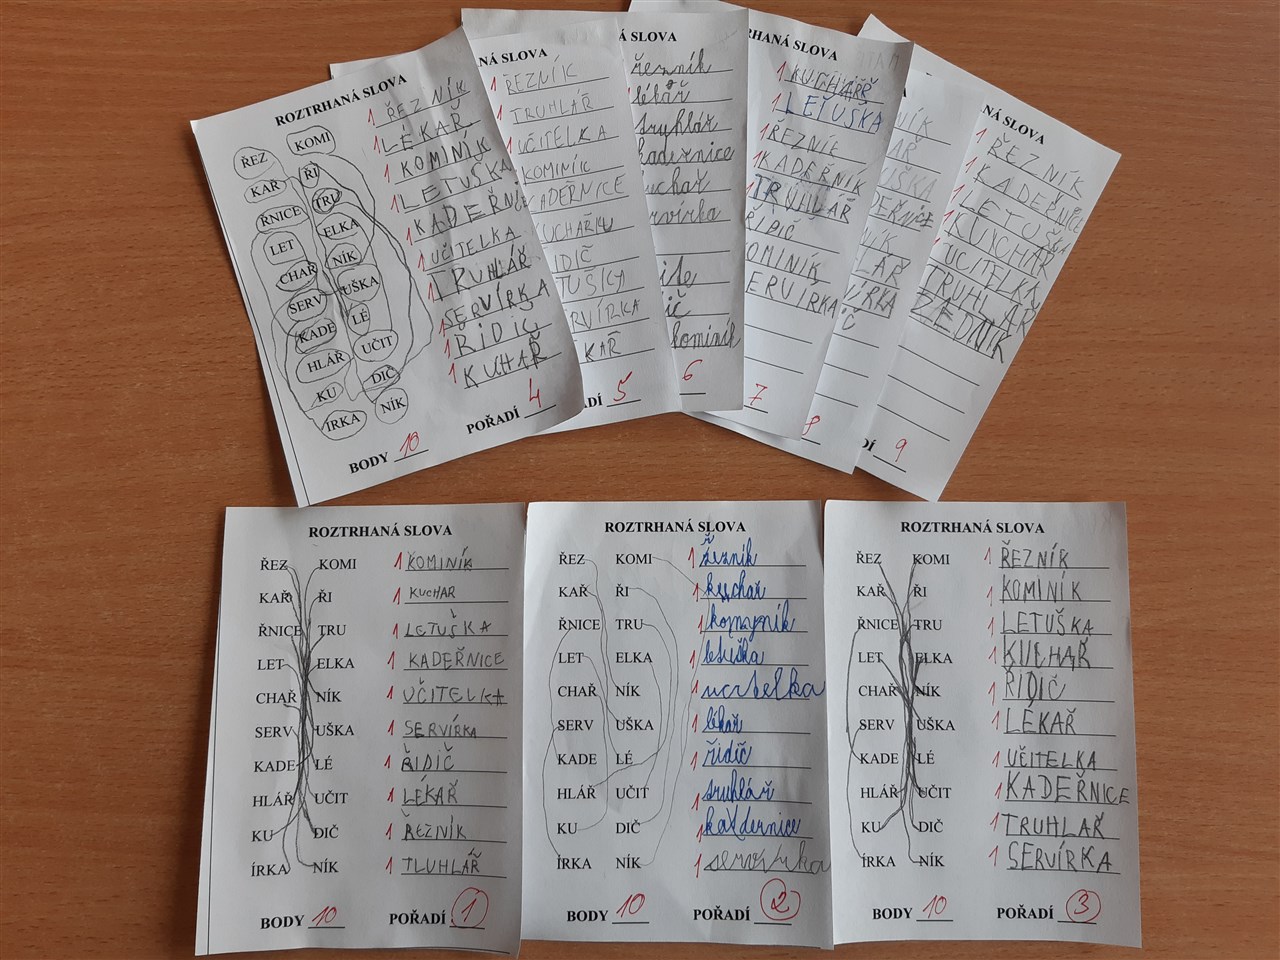 ROZTRHANÁ SLOVA
KOMI
ŘEZ
KAŘ ŘI
ŘNICE TRU
LET ELKA
CHAŘ NÍK
SERV UŠKA
KADE LÉ
HLÁŘ UČIT
KU DIČ
ÍRKA NÍK
1 ŘEZNÍK
1 LÉKAŘ
1 KOMINÍK
1 LETUŠKA
1 KADEŘNI
1 UČITELKA
1 TRUHLÁŘ
SERVÍRKA
1 ŘIDIČ
1 KUHAŘ
BODY 10 POŘADÍ 4
NÁ SLOVA
1 ŘEZNÍK
1 TRUHLÁŘ
1 UČITELKA
KOMINÍK
KADERNICE
KUCHAŘKU
IDIČ
TUŠKY
RVÍRKA
KAŘ
ADÍ 5
SLOVA
řezník
lékář
truhlář
kadeznice
uchař
rvírka
ič
kominík
6
HANÁ SLOVA
1 KUCHÁŘŘ
1 LETUŠKA
1 ŘEZNÍK
1 KADEŘNÍK
1 TRUHLÁŘ
ŘIDIČ
OMINÍK
ERVÍRKA
7
NÍK
AŘ
UŠKA
DEŘNICE
NÍK
LÁŘ
ÍRKA
Č
8
NÁ SLOVA
1 ŘEZNÍK
1 KADEŘNICE
1 LETUŠKA
1 KUCHAŘ
1 UCITELKA
TRUHLÁŘ
ZEDNÍK
DÍ 9
ROZTRHANÁ SLOVA
ŘEZ KOMI 1 KOMINÍK
KAŘ ŘI 1 KUCHAR
ŘNICE TRU 1 LETUŠKA
LET ELKA 1 KADEŘNICE
CHAŘ NÍK 1 UČITELKA
SERV UŠKA 1 SERVÍRKA
KADE LÉ 1 ŘIDIČ
HLÁŘ UČIT 1 LÉKAŘ
KU DIČ 1 ŘEZNÍK
ÍRKA NÍK 1 TLUHLÁŘ
BODY 10 POŘADÍ 1
ROZTRHANÁ SLOVA
ŘEZ KOMI 1 řezník
KAŘ ŘI 1 kuchař
ŘNICE TRU 1 komyník
LET ELKA 1 letuška
CHAŘ NÍK 1 ucitelka
SERV UŠKA 1 lékař
KADE LÉ 1 řidič
HLÁŘ UČIT 1 truhlář
KU DIČ 1 kadernice
ÍRKA NÍK 1 servírka
BODY 10 POŘADÍ 2
ROZTRHANÁ SLOVA
ŘEZ KOMI 1 ŘEZNÍK
KAŘ ŘI 1 KOMINÍK
ŘNICE TRU 1 LETUŠKA
LET ELKA 1 KUCHAŘ
CHAŘ NÍK 1 ŘIDIČ
SERV UŠKA 1 LÉKAŘ
KADE LÉ 1 UČITELKA
HLÁŘ UČIT 1 KADEŘNICE
KU DIČ 1 TRUHLAŘ
ÍRKA NÍK 1 SERVÍRKA
BODY 10 POŘADÍ 3